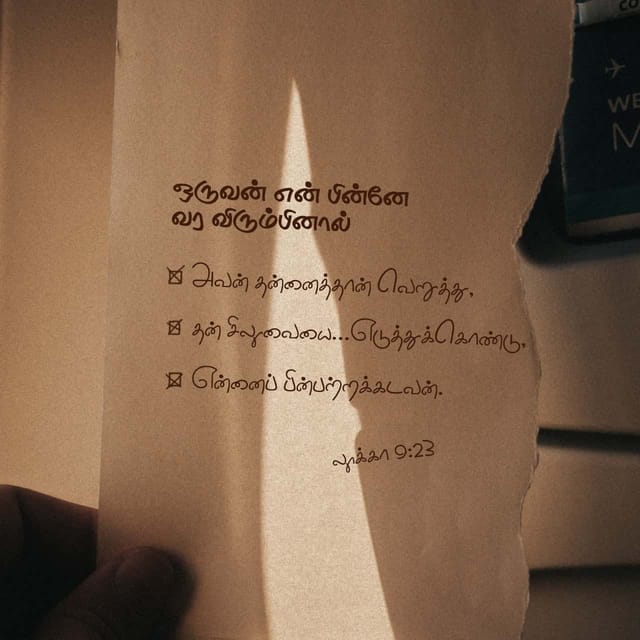 CO
WE
M
ஒருவன் என் பின்னே
வர விரும்பினால்
அவன் தன்னைத்தான் வெறுத்து,
தன் சிலுவையை...எடுத்துக்கொண்டு,
என்னைப் பின்பற்றக்கடவன்.
லூக்கா 9:23